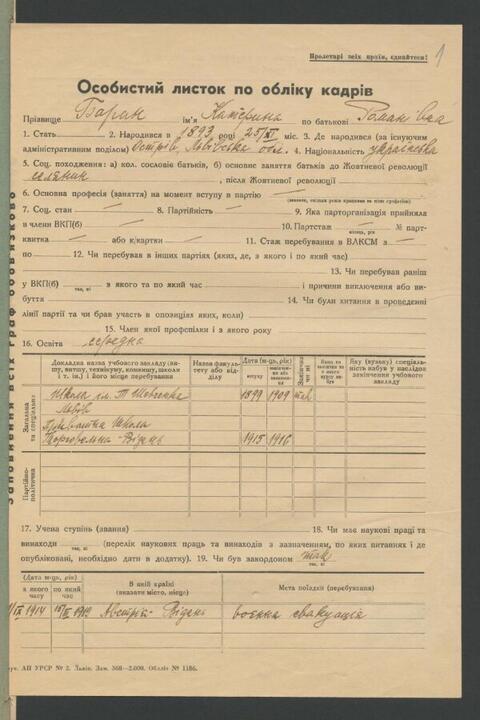 Пролетарі всіх країн, єднайтеся!
1
Особистий листок по обліку кадрів
Прізвище Баран ім'я Катерина по батькові Романівна
1. Стать 2. Народився в 1893 році 25/XI міс. 3. Де народився (за існуючим
адміністративним поділом) Острів, Львівська обл. 4. Національність українка
5. Соц. походження: а) кол. сословіє батьків, б) основне заняття батьків до Жовтневої революції
селяник, після Жовтневої революції
6. Основна професія (заняття) на момент вступу в партію —
(зазначити, скільки років працював на цією професією)
7. Соц. стан — 8. Партійність — 9. Яка парторганізація прийняла
в члени ВКП(б) — 10. Партстаж — № парт-
місяць, рік
квитка — або к/картки — 11. Стаж перебування в ВЛКСМ з —
по 12. Чи перебував в інших партіях (яких, де, з якого і по який час)
13. Чи перебував раніш
у ВКП(б) з якого та по який час і причини виключення або ви-
так, ні
буття 14. Чи були хитання в проведенні
лінії партії та чи брав участь в опозиціях яких, коли)
15. Член якої профспілки і з якого року
16. Освіта середня
Докладна назва учбового закладу (ви-
шу, втишу, технікуму, комвишу, школи
і т. ін.) і його місце перебування
Назва факуль-
тету або від-
ділу
Дата (м-ць, рік)
вступу
Закінчив
чи ні
Яку (вузьку) спеціаль-
ність набув у наслідок
закінчення учбового
закладу
Загальна
та спеціальна
Школа ім. Т. Шевченка 1899 1909 так
Львів
Приватна школа
Торговельна - Відень 1915 1916
Партійно-
політична
17. Учена ступінь (звання) 18. Чи має наукові праці та
винаходи (перелік наукових праць та винаходів з зазначенням, по яких питаннях і де
так, ні
опубліковані, необхідно дати в додатку). 19. Чи був закордоном так
так, ні
Дата (м-ць, рік)
з якого
часу
по який
час
В якій країні
(вказати місто, місце)
Мета поїздки (перебування)
1/IX 1914 Австрія - Відень воєнна евакуація
АП УРСР № 2. Львів. Зам. 368—2.000. Обліт № 1186.
заповнення всіх граф обов'язково